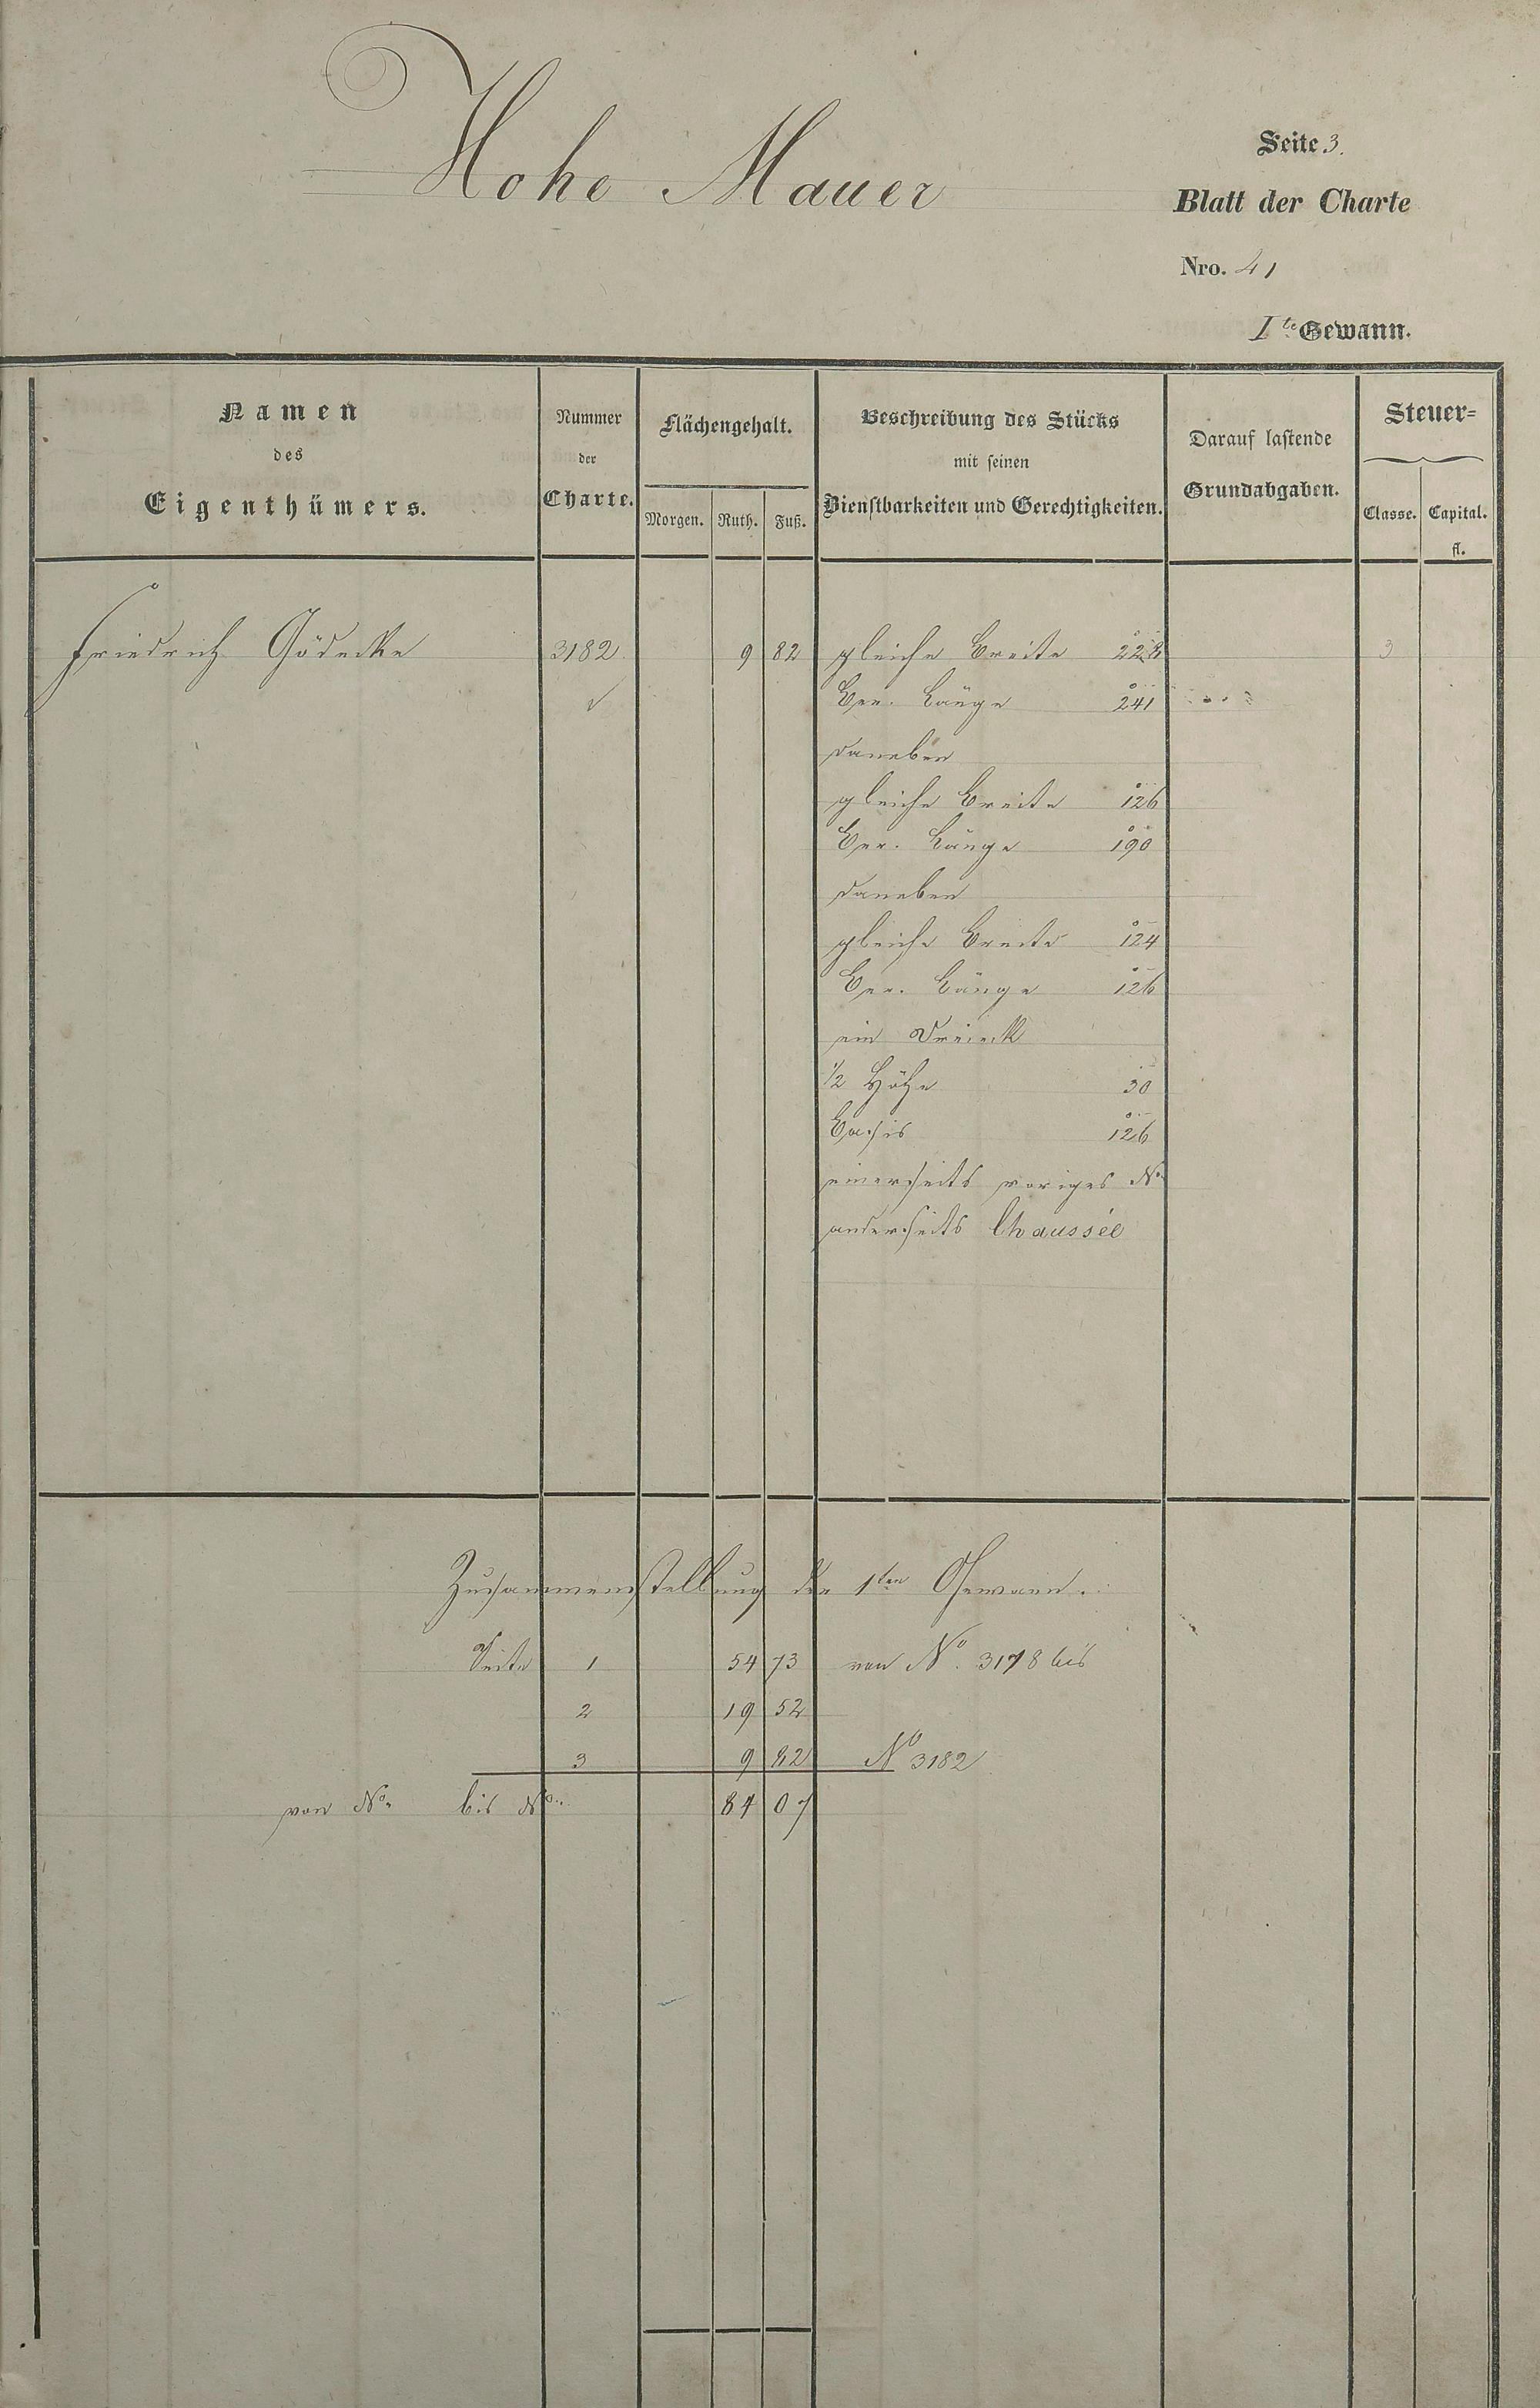 Hohe Mauer
Seite 3.
Blatt der Charte
Nro. 41
I te Gewann.
Namen des Eigenthümers.
Nummer der Charte.
Flächengehalt.
Morgen. Ruth. Fuß.
Beschreibung des Stücks
mit seinen
Dienstbarkeiten und Gerechtigkeiten.
Darauf lastende
Grundabgaben.
Steuer=
Classe. Capital.
fl.
Friedrich Gödecke 3182 9 82 gleiche Breite 228 3
Ber. Länge 241
daneben
gleiche Breite 126
Ber. Länge 190
daneben
gleiche Breite 124
Ber. Länge 126
ein Dreieck
1/2 Höhe 30
Basis 126
einerseits voriges No
anderseits Chaussée
Zusammenstellung der 1ten Gewann.
Seite 1 54 73 von No. 3178 bis
2 19 52
3 9 82 No 3182
von No. bis No. 84 07